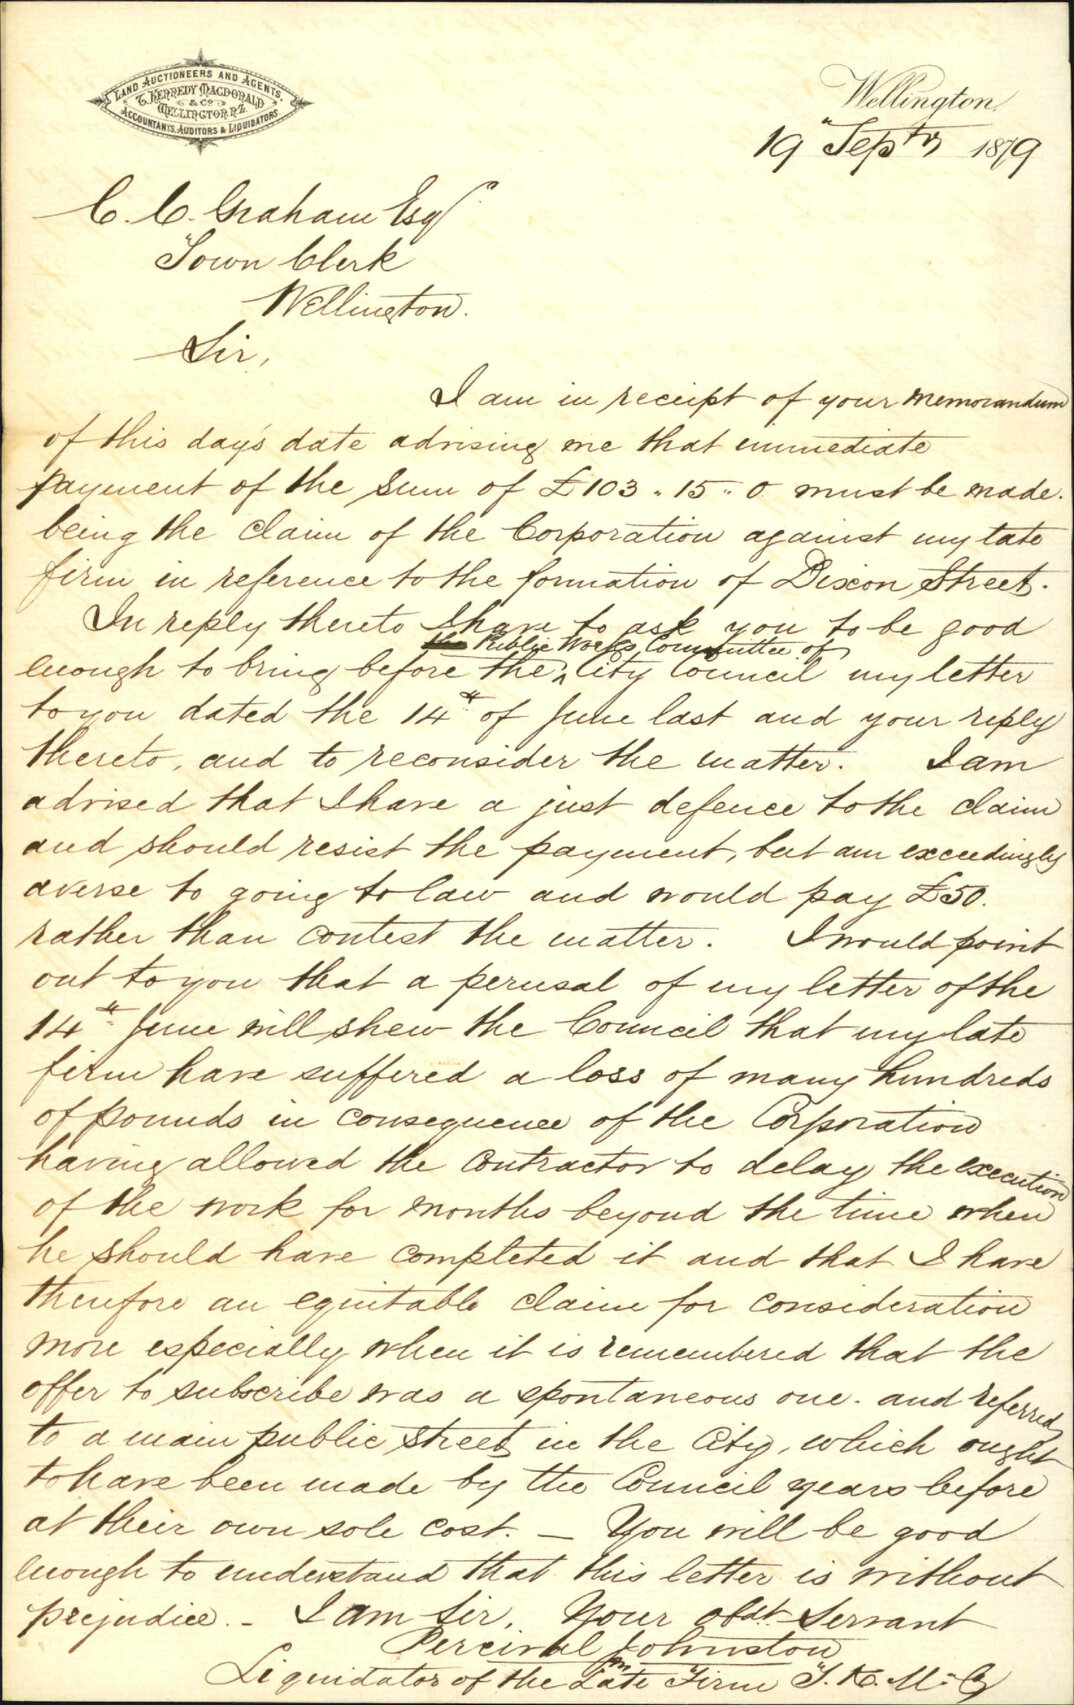 LAND AUCTIONEERS AND AGENTS,
T. KENNEDY MACDONALD
& CO
WELLINGTON N.Z.
ACCOUNTANTS, AUDITORS & LIQUIDATORS
Wellington,
19 Septr 1879
C. C. Graham Esqr
Town Clerk
Wellington.
Sir,
I am in receipt of your memorandum
of this day's date advising me that immediate
payment of the sum of £103.15.0 must be made.
being the claim of the Corporation against my late
firm in reference to the formation of Dixon Street.
In reply thereto I have to ask you to be good
Public Works Committee of
enough to bring before the ^ City Council my letter
to you dated the 14th of June last and your reply
thereto, and to reconsider the matter. I am
advised that I have a just defence to the claim
and should resist the payment, but am exceedingly
averse to going to law and would pay £50.
rather than contest the matter. I would point
out to you that a perusal of my letter of the
14th June will shew the Council that my late
firm have suffered a loss of many hundreds
of pounds in consequence of the Corporation
having allowed the contractor to delay the execution
of the work for months beyond the time when
he should have completed it and that I have
therefore an equitable claim for consideration
more especially when it is remembered that the
offer to subscribe was a spontaneous one. and referred
to a main public street in the City, which ought
to have been made by the Council years before
at their own sole cost. — You will be good
enough to understand that this letter is without
prejudice. - I am Sir, Your obdt Servant
Percival Johnston
Liquidator of the Late Firm T. K. M. & Co